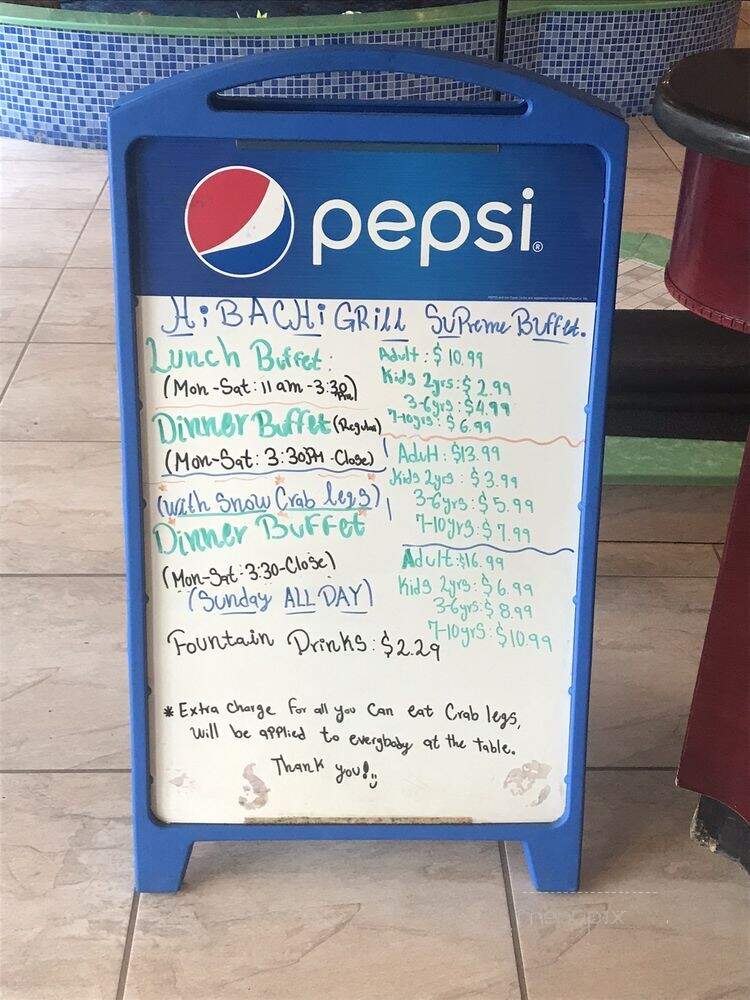 pepsi®
HiBACHi GRill SuPreme Buffet.
Lunch Buffet:
(Mon-Sat: 11 am-3:30 PM)
Adult: $10.99
Kids 2yrs: $2.99
3-6yrs: $4.99
7-10yrs: $6.99
Dinner Buffet (Regular)
(Mon-Sat: 3:30PM-Close)
Adult: $13.99
Kids 2yrs: $3.99
3-6yrs: $5.99
7-10yrs: $7.99
(with Snow Crab legs)
Dinner Buffet
(Mon-Sat: 3:30-Close)
(Sunday ALL DAY)
Adult: $16.99
Kids 2yrs: $6.99
3-6yrs: $8.99
7-10yrs: $10.99
Fountain Drinks: $2.29
* Extra charge for all you can eat Crab legs,
will be applied to everybody at the table.
Thank you!
menupix